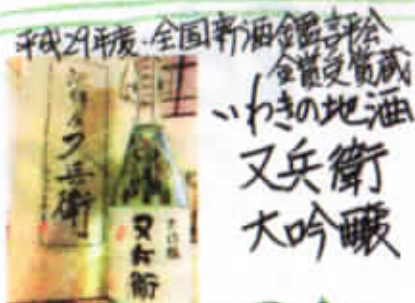 平成29年度 全国新酒鑑評会
金賞受賞蔵
いわきの地酒
又兵衛
大吟醸
又兵衛
大吟醸
又兵衛